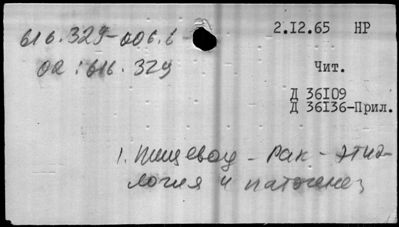 616.329-006.6-
02.12.65 НР
02:616.329
Чит.
Д 36109
Д 36136-Прил.
1. Пищевод - рак - этио-
логия и патогенез